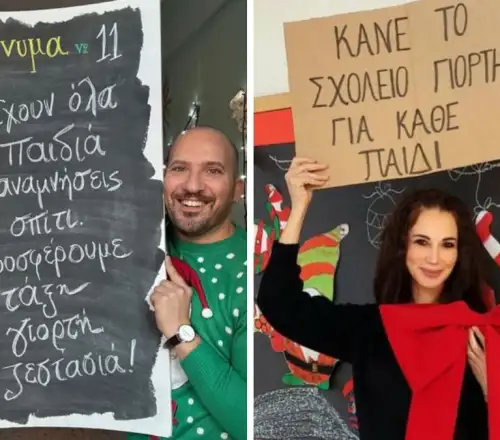 νυμα Νº 11
έχουν όλα
παιδιά
αναμνήσεις
σπίτι.
ροσφέρουμε
τάξη
γιορτή
ζεστασιά!
ΚΑΝΕ ΤΟ
ΣΧΟΛΕΙΟ ΓΙΟΡΤΗ
ΓΙΑ ΚΑΘΕ
ΠΑΙΔΙ